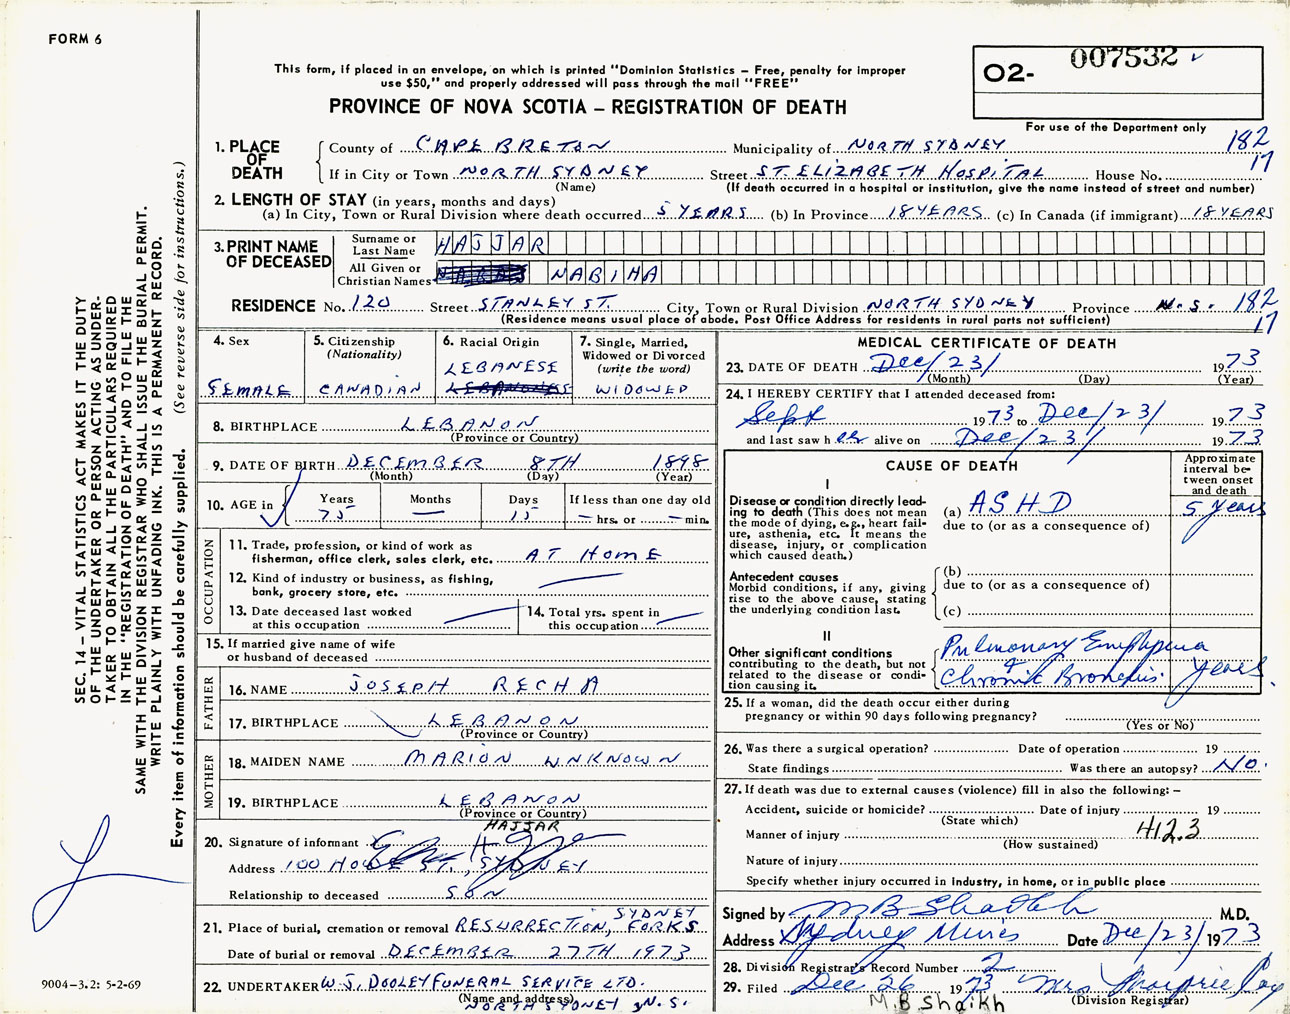 FORM 6
O2- 007532
This form, if placed in an envelope, on which is printed "Dominion Statistics – Free, penalty for improper
use $50," and properly addressed will pass through the mail "FREE"
PROVINCE OF NOVA SCOTIA – REGISTRATION OF DEATH
For use of the Department only
182
17
1. PLACE OF DEATH
County of CAPE BRETON Municipality of NORTH SYDNEY
If in City or Town NORTH SYDNEY Street ST. ELIZABETH HOSPITAL House No.
(Name) (If death occurred in a hospital or institution, give the name instead of street and number)
2. LENGTH OF STAY (in years, months and days)
(a) In City, Town or Rural Division where death occurred 5 YEARS (b) In Province 18 YEARS (c) In Canada (if immigrant) 18 YEARS
3. PRINT NAME OF DECEASED
Surname or Last Name HAJJAR
All Given or Christian Names NABIHA
RESIDENCE No. 120 Street STANLEY ST. City, Town or Rural Division NORTH SYDNEY Province N.S. 182
17
(Residence means usual place of abode. Post Office Address for residents in rural parts not sufficient)
4. Sex
FEMALE
5. Citizenship
(Nationality)
CANADIAN
6. Racial Origin
LEBANESE
7. Single, Married,
Widowed or Divorced
(write the word)
WIDOWED
8. BIRTHPLACE LEBANON
(Province or Country)
9. DATE OF BIRTH DECEMBER 8TH 1898
(Month) (Day) (Year)
10. AGE in
Years Months Days If less than one day old
75 — 15 — hrs. or — min.
OCCUPATION
11. Trade, profession, or kind of work as
fisherman, office clerk, sales clerk, etc. AT HOME
12. Kind of industry or business, as fishing,
bank, grocery store, etc.
13. Date deceased last worked
at this occupation
14. Total yrs. spent in
this occupation
15. If married give name of wife
or husband of deceased
FATHER
16. NAME JOSEPH RECHA
17. BIRTHPLACE LEBANON
(Province or Country)
MOTHER
18. MAIDEN NAME MARION UNKNOWN
19. BIRTHPLACE LEBANON
(Province or Country)
HAJJAR
20. Signature of informant
Address 100 HOWE ST., SYDNEY
Relationship to deceased SON
21. Place of burial, cremation or removal RESURRECTION, SYDNEY FORKS
Date of burial or removal DECEMBER 27TH 1973
22. UNDERTAKER W.J. DOOLEY FUNERAL SERVICE LTD.
(Name and address)
NORTH SYDNEY, N.S.
MEDICAL CERTIFICATE OF DEATH
23. DATE OF DEATH Dec/23/ 1973
(Month) (Day) (Year)
24. I HEREBY CERTIFY that I attended deceased from:
Sept 1973 to Dec/23/ 1973
and last saw her alive on Dec/23/ 1973
CAUSE OF DEATH
Approximate
interval be-
tween onset
and death
I
Disease or condition directly lead-
ing to death (This does not mean
the mode of dying, e.g., heart fail-
ure, asthenia, etc. It means the
disease, injury, or complication
which caused death.)
(a) ASHD 5 years
due to (or as a consequence of)
Antecedent causes
Morbid conditions, if any, giving
rise to the above cause, stating
the underlying condition last.
(b)
due to (or as a consequence of)
(c)
II
Other significant conditions
contributing to the death, but not
related to the disease or condi-
tion causing it.
Pulmonary Emphysema
& Chronic Bronchitis years.
25. If a woman, did the death occur either during
pregnancy or within 90 days following pregnancy?
(Yes or No)
26. Was there a surgical operation? Date of operation 19
State findings Was there an autopsy? NO.
27. If death was due to external causes (violence) fill in also the following: –
Accident, suicide or homicide? Date of injury 19
(State which)
Manner of injury 412.3
(How sustained)
Nature of injury
Specify whether injury occurred in industry, in home, or in public place
Signed by M B Shaikh M.D.
Address Sydney Mines Date Dec/23/1973
28. Division Registrar's Record Number 2
29. Filed Dec 26 1973 Mrs
(Division Registrar)
M.B Shaikh
SEC. 14 – VITAL STATISTICS ACT MAKES IT THE DUTY
OF THE UNDERTAKER OR PERSON ACTING AS UNDER-
TAKER TO OBTAIN ALL THE PARTICULARS REQUIRED
IN THE "REGISTRATION OF DEATH" AND TO FILE THE
SAME WITH THE DIVISION REGISTRAR WHO SHALL ISSUE THE BURIAL PERMIT.
WRITE PLAINLY WITH UNFADING INK. THIS IS A PERMANENT RECORD.
Every item of information should be carefully supplied. (See reverse side for instructions.)
9004–3.2: 5-2-69